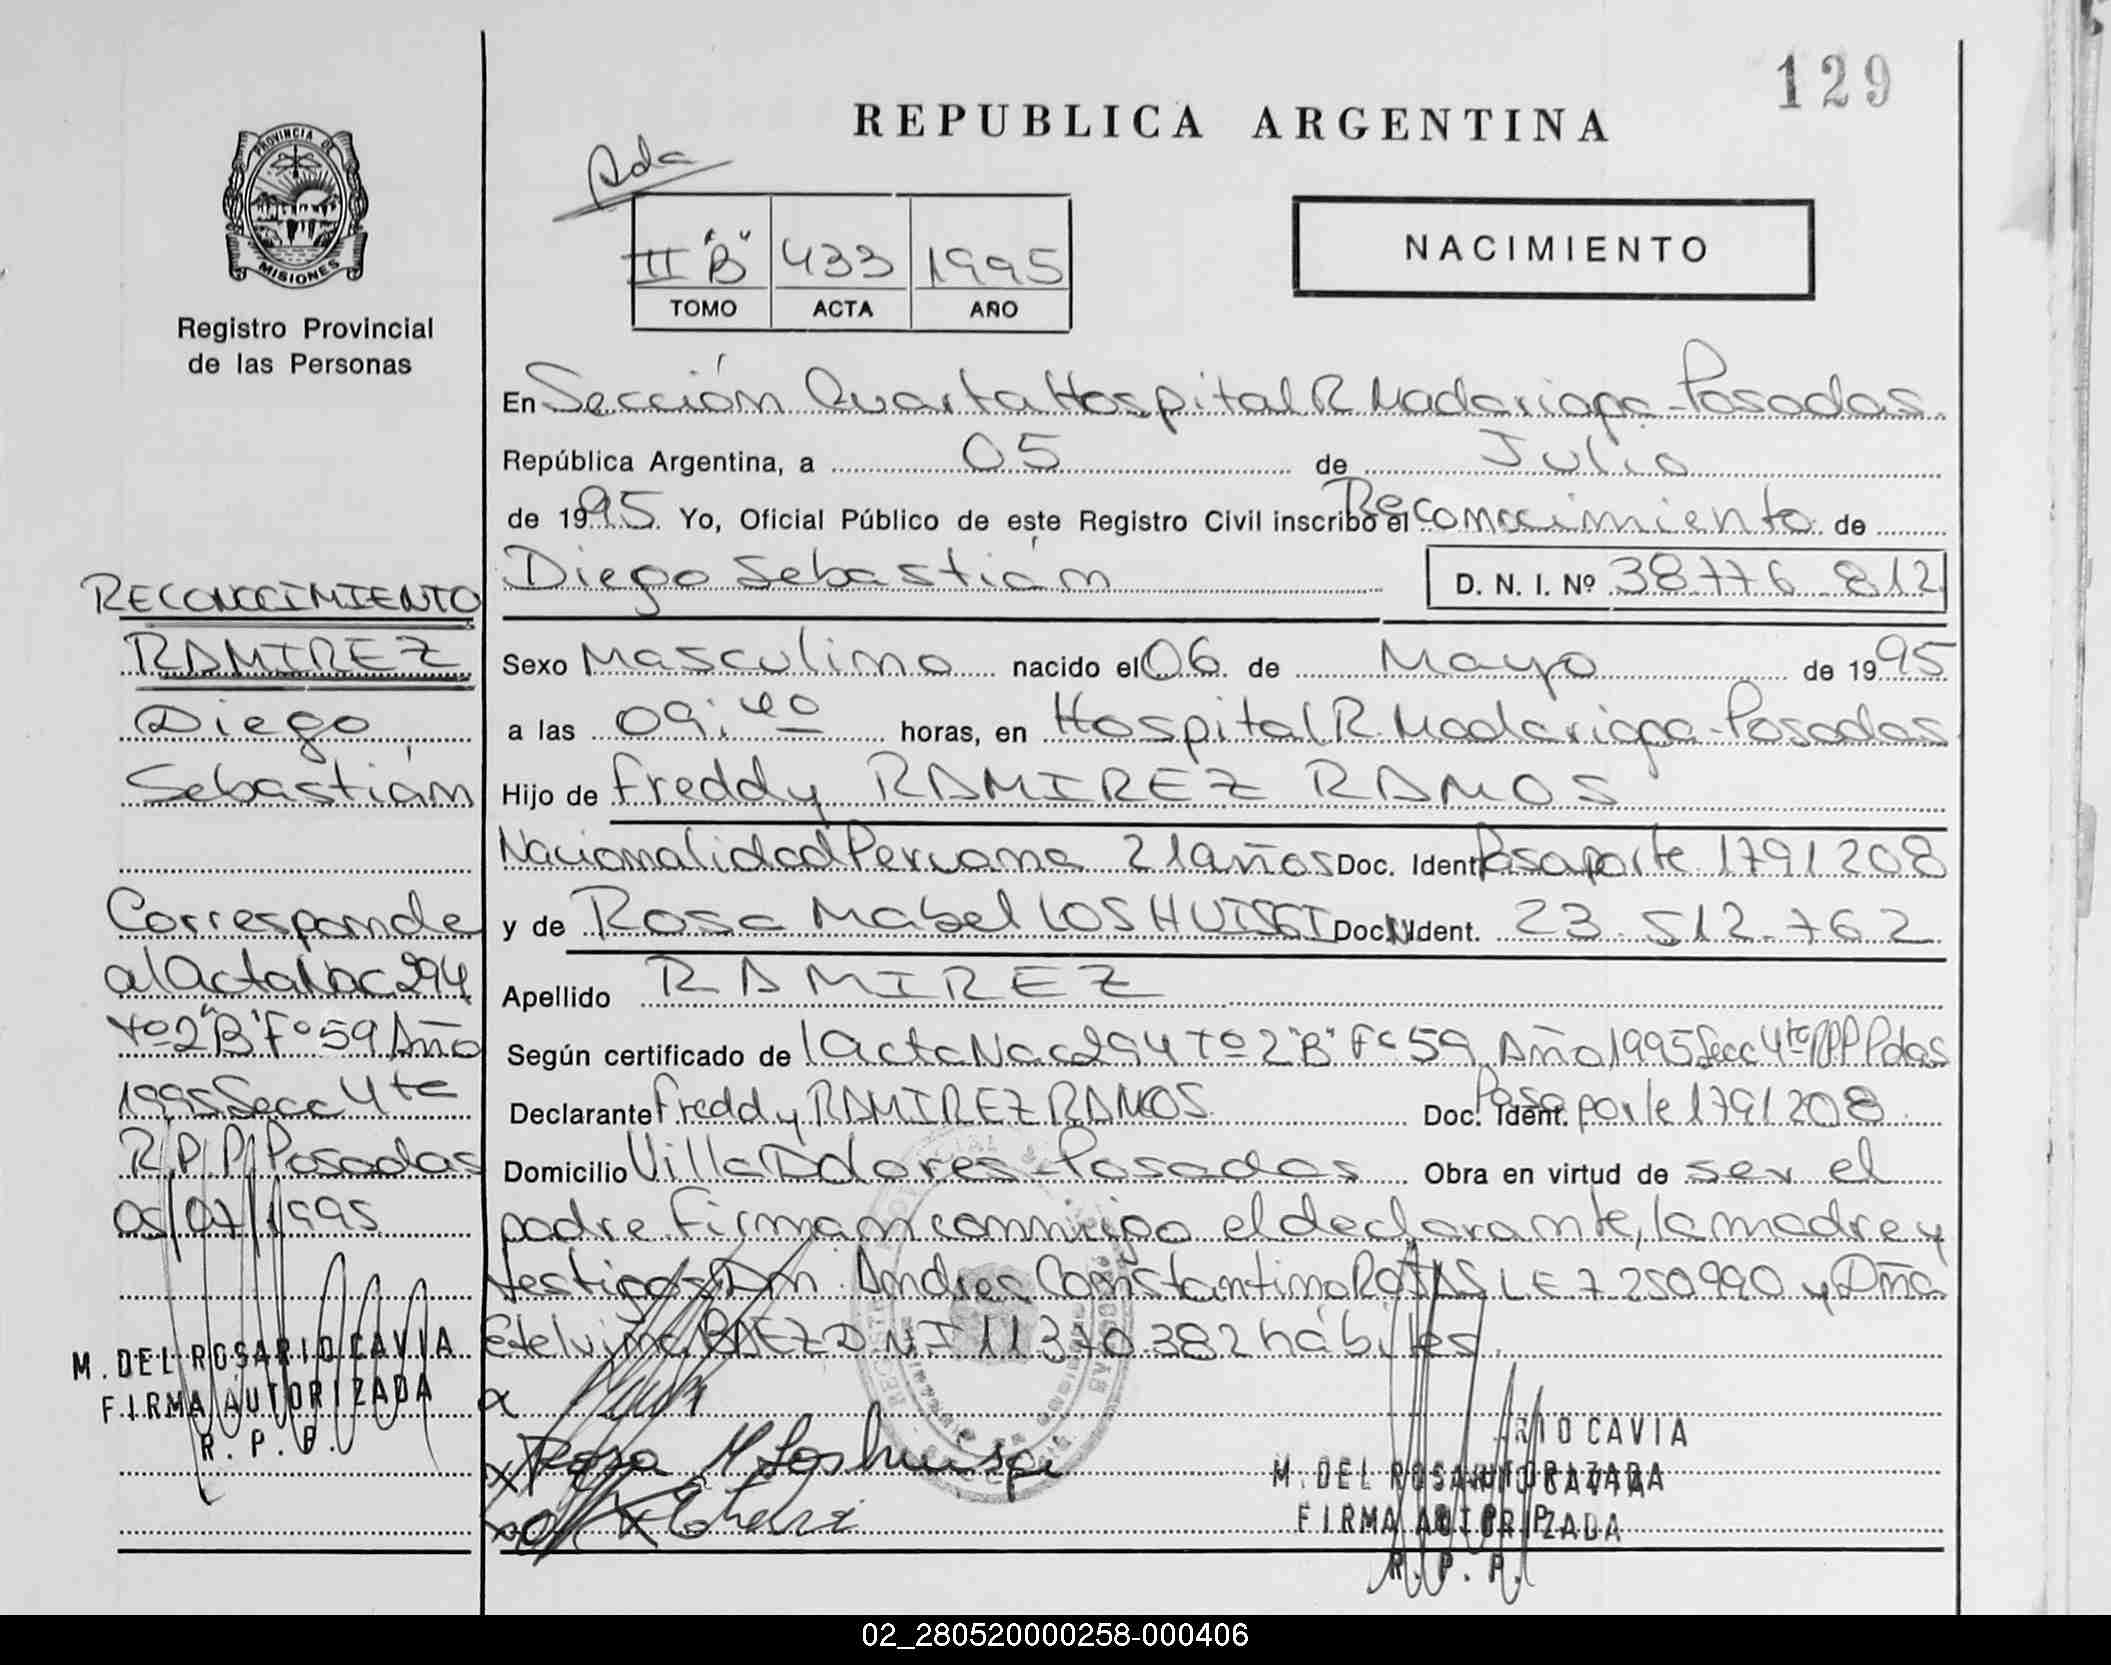 129
REPUBLICA ARGENTINA
PROVINCIA DE
MISIONES
Registro Provincial
de las Personas
II "B" 433 1995
TOMO ACTA AÑO
NACIMIENTO
En Sección Cuarta Hospital R Madariaga - Posadas
República Argentina, a 05 de Julio
de 1995 Yo, Oficial Público de este Registro Civil inscribo el Reconocimiento de
Diego Sebastián D. N. I. Nº 38.776.812
Sexo Masculino nacido el 06 de Mayo de 1995
a las 09:40 horas, en Hospital R. Madariaga - Posadas
Hijo de Freddy RAMIREZ RAMOS
Nacionalidad Peruana 21 años Doc. Ident. Pasaporte 1791208
y de Rosa Mabel LOSHUISGI Doc. Ident. 23.512.762
Apellido RAMIREZ
Según certificado de l Acta Nac 294 Tº 2 "B" Fº 59 Año 1995 Secc 4ta RPP Pdas
Declarante Freddy RAMIREZ RAMOS Doc. Ident. Pasaporte 1791208
Domicilio Villa Dolores - Posadas Obra en virtud de ser el
padre. Firman conmigo el declarante, la madre y
testigos Dn. Andres Constantino ROJAS L E 7.250990 y Dña
Etelvina BAEZ D N I 11.370.382 hábiles.
Rosa M Loshuisgi
M. DEL ROSARIO CAVIA
FIRMA AUTORIZADA
R. P. P.
RECONOCIMIENTO
RAMIREZ
Diego
Sebastián
Corresponde
al Acta Nac 294
Tº 2 "B" Fº 59 Año
1995 Secc 4ta
R.P.P. Posadas
05/07/1995
M. DEL ROSARIO CAVIA
FIRMA AUTORIZADA
R. P. P.
02_280520000258-000406